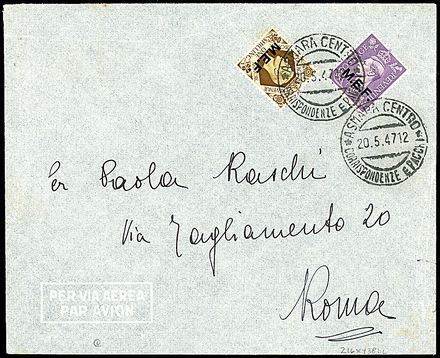 M.E.F.
M.E.F.
ASMARA CENTRO
20.5.47 12
CORRISPONDENZE E PACCHI
ASMARA CENTRO
20.5.47 12
CORRISPONDENZE E PACCHI
Paola Raschi
Via Tagliamento 20
Roma
PER VIA AEREA
PAR AVION